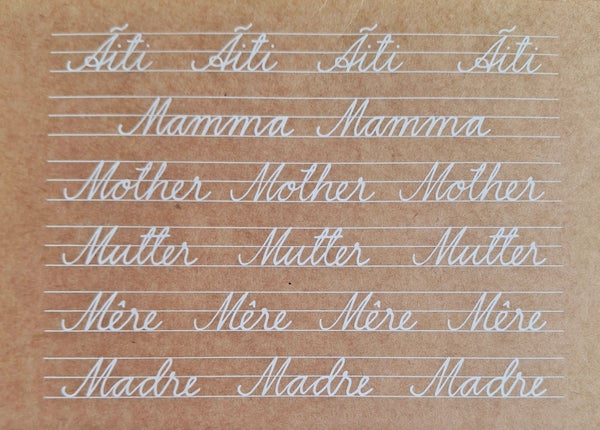 Ãiti Ãiti Ãiti Ãiti
Mamma Mamma
Mother Mother Mother
Mutter Mutter Mutter
Mêre Mêre Mêre Mêre
Madre Madre Madre